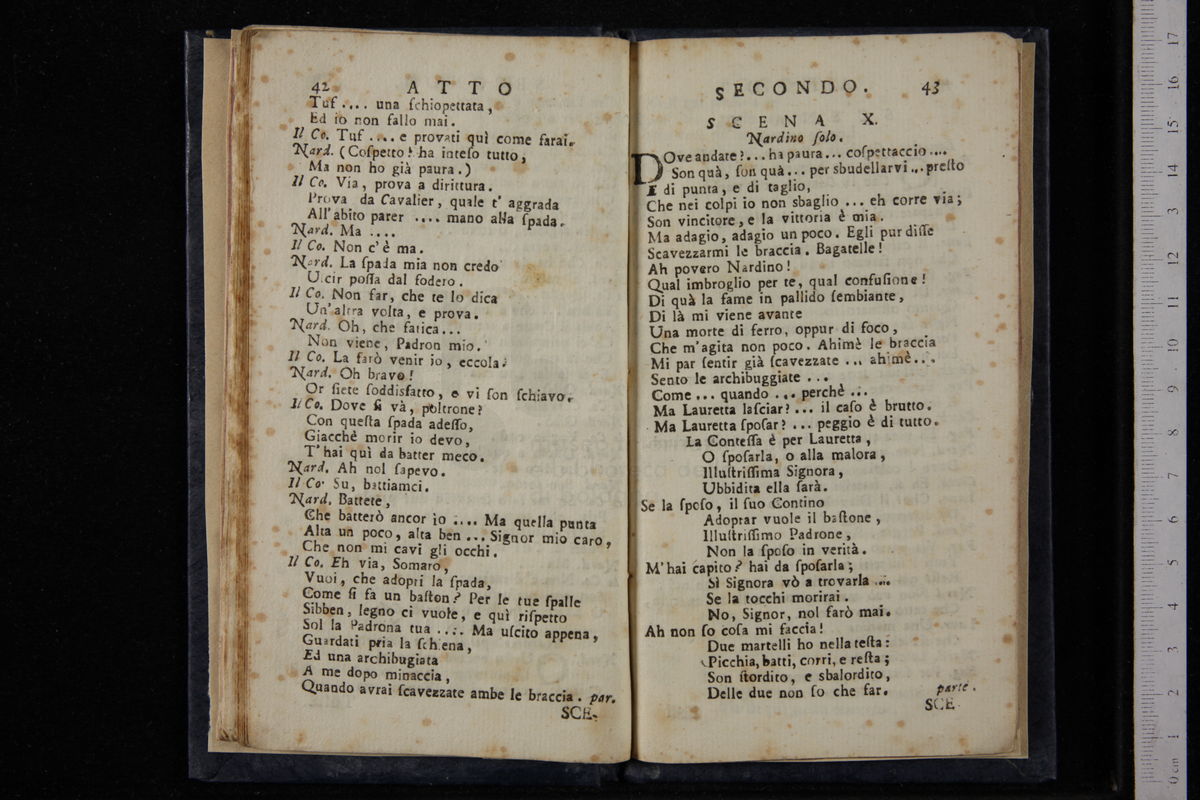 42 ATTO
Tuf .... una ſchiopettata,
Ed io non fallo mai.
Il Co. Tuf .... e provati quì come farai.
Nard. (Coſpetto! ha inteſo tutto,
Ma non ho già paura.)
Il Co. Via, prova a dirittura.
Prova da Cavalier, quale t' aggrada
All'abito parer .... mano alla ſpada.
Nard. Ma ....
Il Co. Non c'è ma.
Nard. La ſpada mia non credo
Uſcir poſſa dal fodero.
Il Co. Non far, che te lo dica
Un'altra volta, e prova.
Nard. Oh, che fatica...
Non viene, Padron mio.
Il Co. La farò venir io, eccola.
Nard. Oh bravo!
Or ſiete ſoddisfatto, e vi ſon ſchiavo.
Il Co. Dove ſi và, poltrone?
Con queſta ſpada adeſſo,
Giacchè morir io devo,
T'hai quì da batter meco.
Nard. Ah nol ſapevo.
Il Co. Su, battiamci.
Nard. Battete,
Che batterò ancor io .... Ma quella punta
Alta un poco, alta ben ... Signor mio caro,
Che non mi cavi gli occhi.
Il Co. Eh via, Somaro,
Vuoi, che adopri la ſpada,
Come ſi fa un baſton? Per le tue ſpalle
Sibben, legno ci vuole, e quì riſpetto
Sol la Padrona tua .... Ma uſcito appena,
Guardati pria la ſchiena,
Ed una archibugiata
A me dopo minaccia,
Quando avrai ſcavezzate ambe le braccia. par.
SCE-
SECONDO. 43
SCENA X.
Nardino ſolo.
DOve andate?... ha paura... coſpettaccio....
Son quà, ſon quà... per sbudellarvi ... preſto
E di punta, e di taglio,
Che nei colpi io non sbaglio ... eh corre via;
Son vincitore, e la vittoria è mia.
Ma adagio, adagio un poco. Egli pur diſſe
Scavezzarmi le braccia. Bagatelle!
Ah povero Nardino!
Qual imbroglio per te, qual confuſione!
Di quà la fame in pallido ſembiante,
Di là mi viene avante
Una morte di ferro, oppur di foco,
Che m'agita non poco. Ahimè le braccia
Mi par ſentir già ſcavezzate ... ahimè...
Sento le archibuggiate ...
Come ... quando ... perchè ...
Ma Lauretta laſciar? ... il caſo è brutto.
Ma Lauretta ſpoſar? ... peggio è di tutto.
La Conteſſa è per Lauretta,
O ſpoſarla, o alla malora,
Illuſtriſſima Signora,
Ubbidita ella ſarà.
Se la ſpoſo, il ſuo Contino
Adoprar vuole il baſtone,
Illuſtriſſimo Padrone,
Non la ſpoſo in verità.
M'hai capito? hai da ſpoſarla;
Sì Signora vò a trovarla ...
Se la tocchi morirai.
No, Signor, nol farò mai.
Ah non ſo coſa mi faccia!
Due martelli ho nella teſta:
Picchia, batti, corri, e reſta;
Son ſtordito, e sbalordito,
Delle due non ſo che far. parte.
SCE-